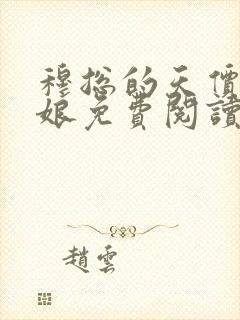 穆總的天價
娘免費閱讀
趙雲